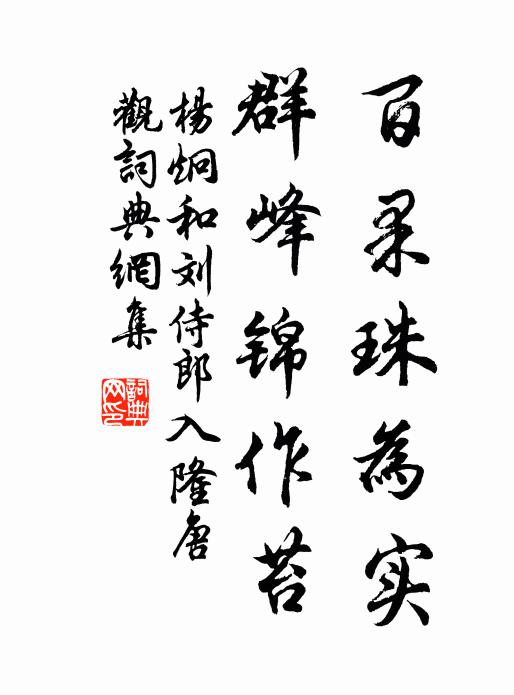 百果珠為实
群峰锦作苔
楊炯和刘侍郎入隆唐
觀詞典網集
詞典
网印